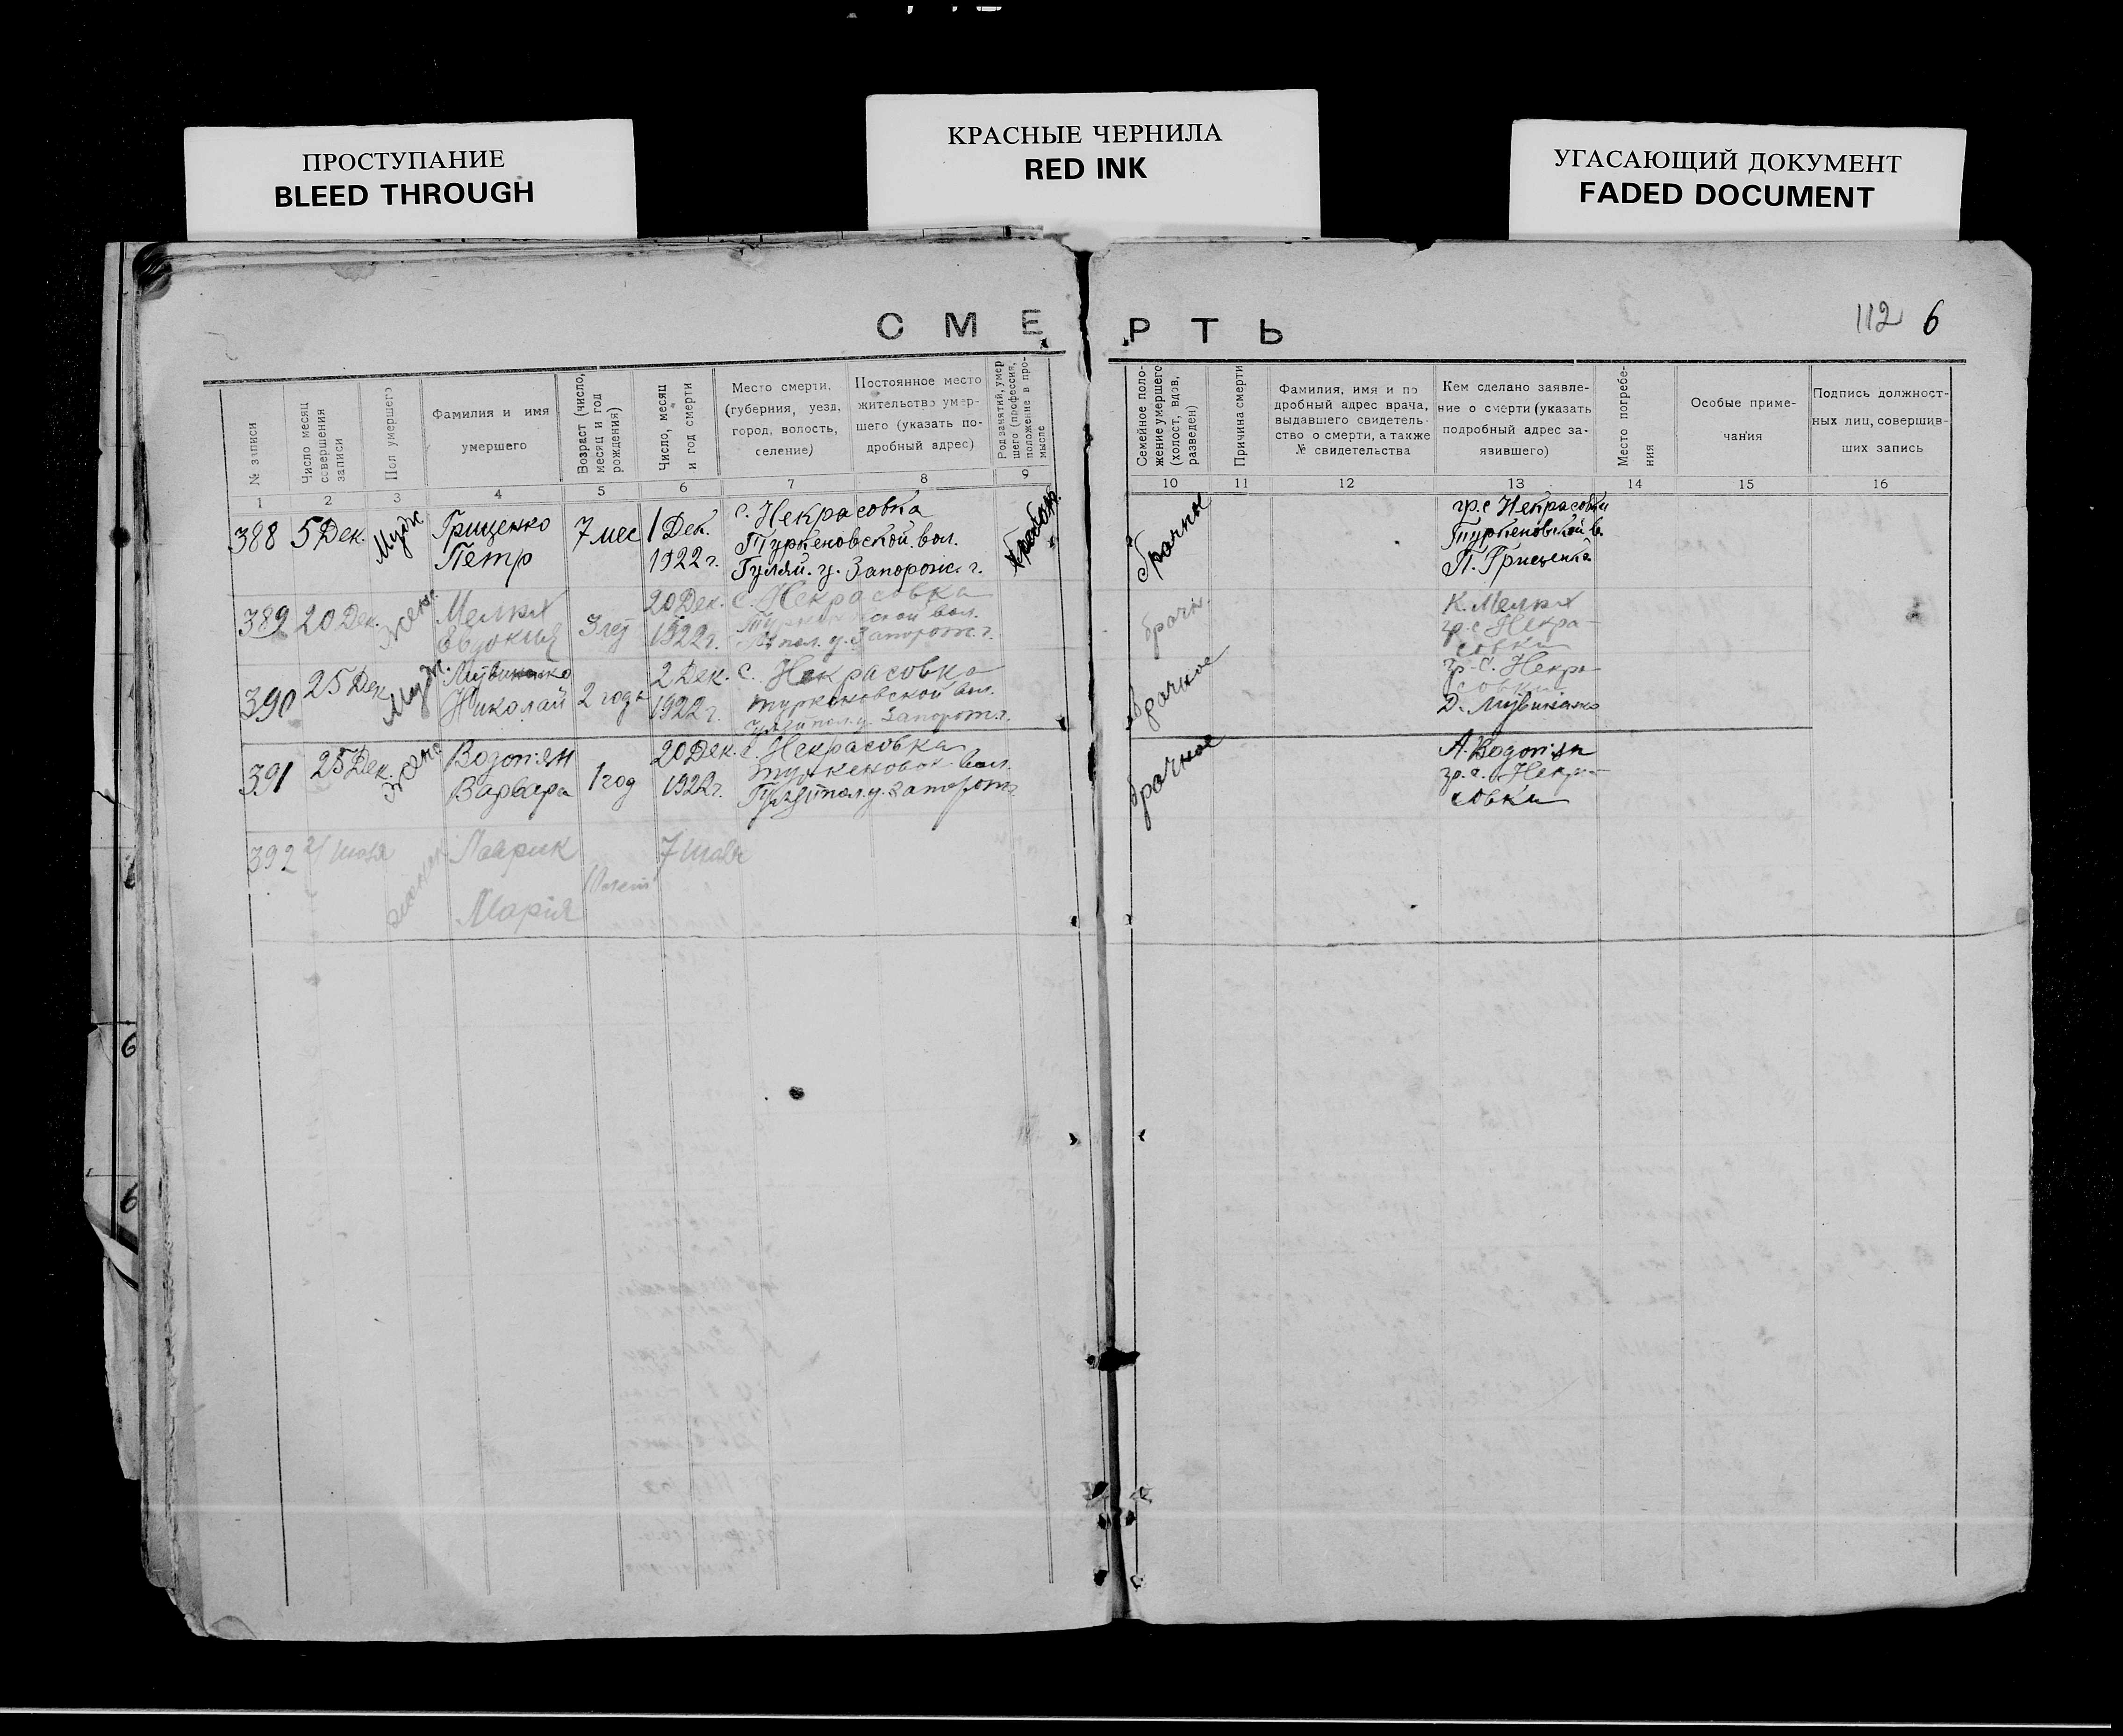 ПРОСТУПАНИЕ
BLEED THROUGH
КРАСНЫЕ ЧЕРНИЛА
RED INK
УГАСАЮЩИЙ ДОКУМЕНТ
FADED DOCUMENT
СМЕРТЬ
112 6
№ записи
Число месяц
совершения
записи
Пол умершего
Фамилия и имя
умершего
Возраст (число,
месяц и год
рождения)
Число, месяц
и год смерти
Место смерти,
(губерния, уезд,
город, волость,
селение)
Постоянное место
жительство умер-
шего (указать по-
дробный адрес)
Род занятий, умер
шего (профессия,
положение в про-
мысле
Семейное поло-
жение умершего
(холост, вдов,
разведен)
Причина смерти
Фамилия, имя и по
дробный адрес врача,
выдавшего свидетель-
ство о смерти, а также
№ свидетельства
Кем сделано заявле-
ние о смерти (указать
подробный адрес за-
явившего)
Место погребе-
ния
Особые приме-
чания
Подпись должност-
ных лиц, соверши‍в-
ших запись
1 2 3 4 5 6 7 8 9 10 11 12 13 14 15 16
388 5 Дек. Муж Грищенко
Петр
7 мес
1 Дек.
1922 г.
с. Некрасовка
Туркеновской вол.
Гуляй. у. Запорож. г.
брачны
гр. с Некрасовки
Туркеновской в.
П. Грищенко
389 20 Дек. жен.
Мелких
Евдокия
20 Дек.
1922 г.
с. Некрасовка
вол.
пол. у. Запорож. г.
брачн.
К. Мелких
гр. с Некра-
совки
390 25 Дек Муж.
Николай
2 года
2 Дек.
1922 г.
с. Некрасовка
Туркеновской вол.
Гуляйпол. у. Запорож. г.
брачное
гр. с. Некра-
совки
Д.
391 25 Дек. жен
Варвара
1 год
20 Дек.
1922 г.
с. Некрасовка
Туркеновск вол.
Гуляйпол. у. Запорож г
брачное
А.
гр. с. Некра-
совки
392
Лаврик
Марія
7
6
6